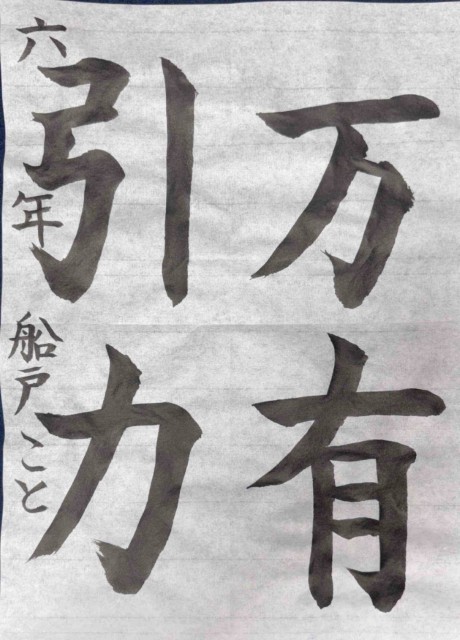 万有
引力
六年 船戸こと